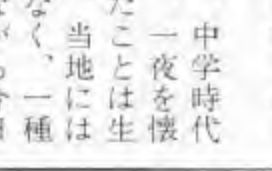 中学時代
一夜を懐
たことは生
当地には
なく、一種